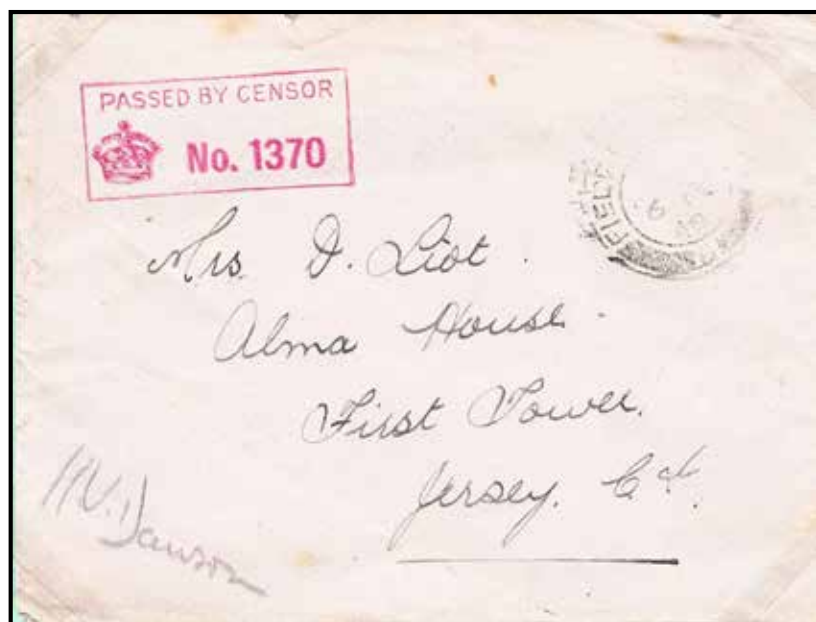 PASSED BY CENSOR
No. 1370
FIELD
Mrs. D. Liot.
Alma House.
First Tower.
Jersey. C.I.
Dawson